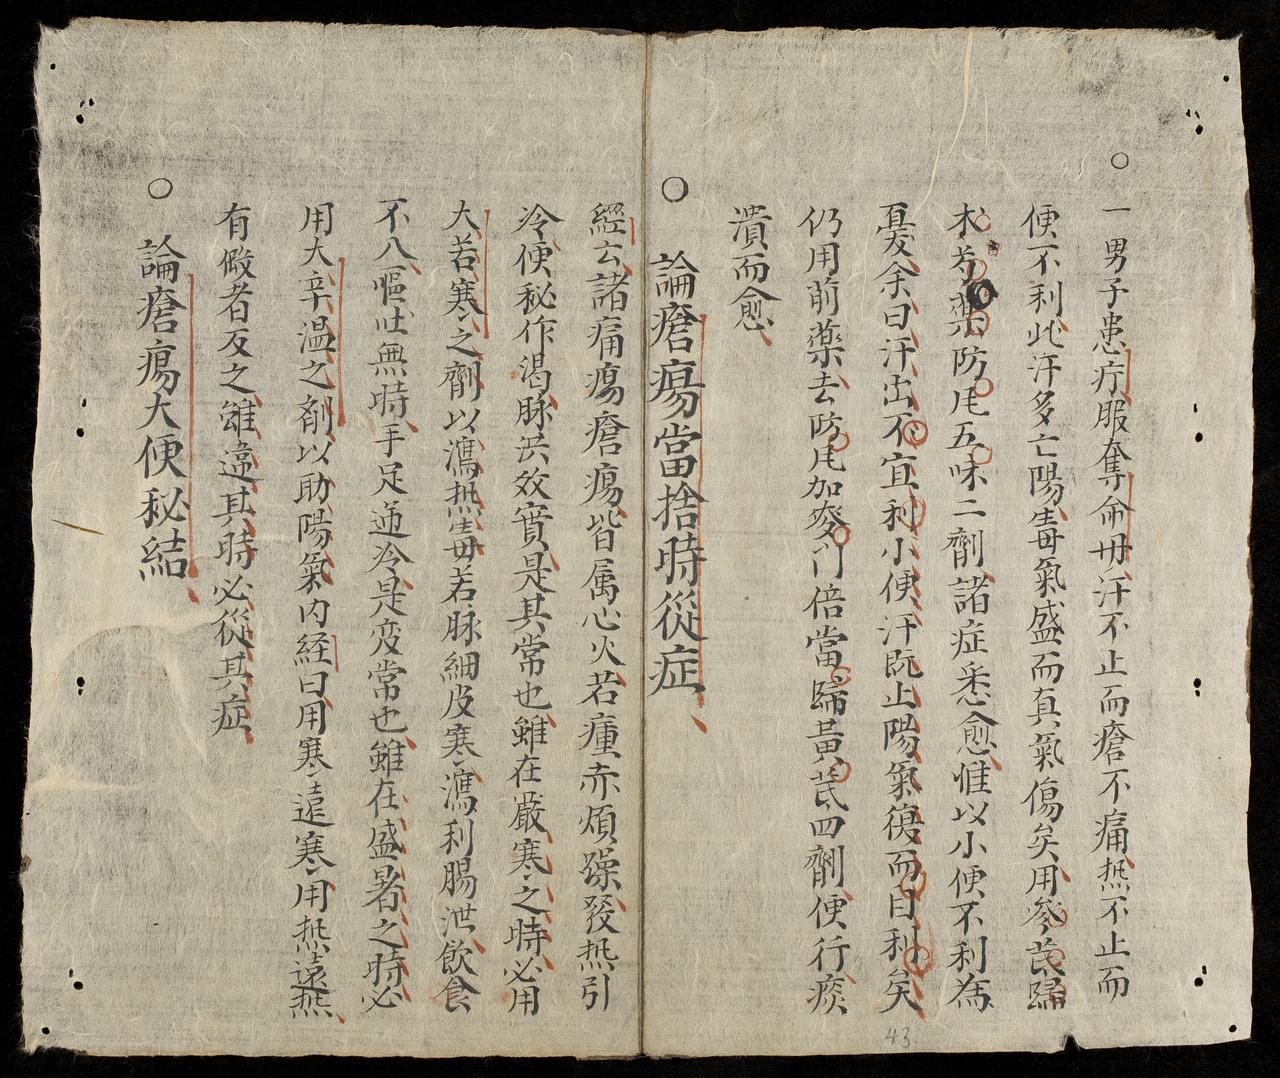 ○一男子患疔服奪命丹汗不止而瘡不痛热不止而
便不利此汗多亡陽毒氣盛而真氣傷矣用參芪歸
术芍藥防风五味二劑諸症悉愈惟以小便不利為
憂余曰汗出不宜利小便汗既止陽氣復而自利矣
仍用前藥去防风加麥门倍當歸黃芪四劑便行瘀
潰而愈
○論瘡瘍當捨時從症
經云諸痛瘍瘡瘍皆属心火若瘇赤煩躁發热引
冷便秘作渴脉洪数實是其常也雖在嚴寒之時必用
大苦寒之劑以瀉热毒若脉細皮寒瀉利腸泄飲食
不入嘔吐無時手足逆冷是变常也雖在盛暑之時必
用大辛温之剂以助陽氣内经曰用寒遠寒用热遠热
有假者反之雖違其時必從其症
○論瘡瘍大便秘結
43